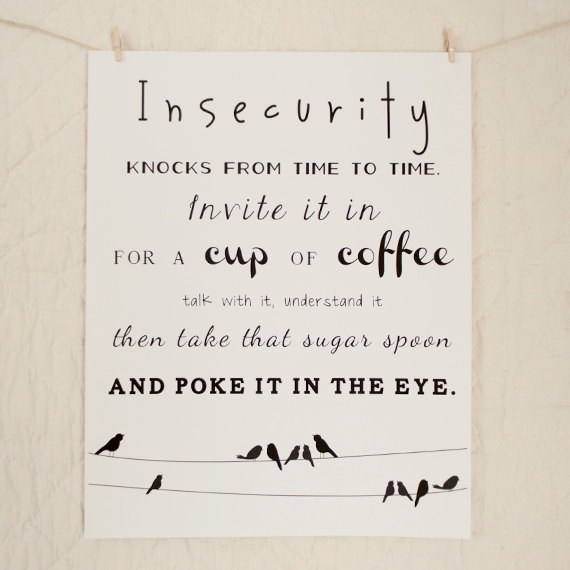 Insecurity
KNOCKS FROM TIME TO TIME.
Invite it in
FOR A cup OF coffee
talk with it, understand it
then take that sugar spoon
AND POKE IT IN THE EYE.